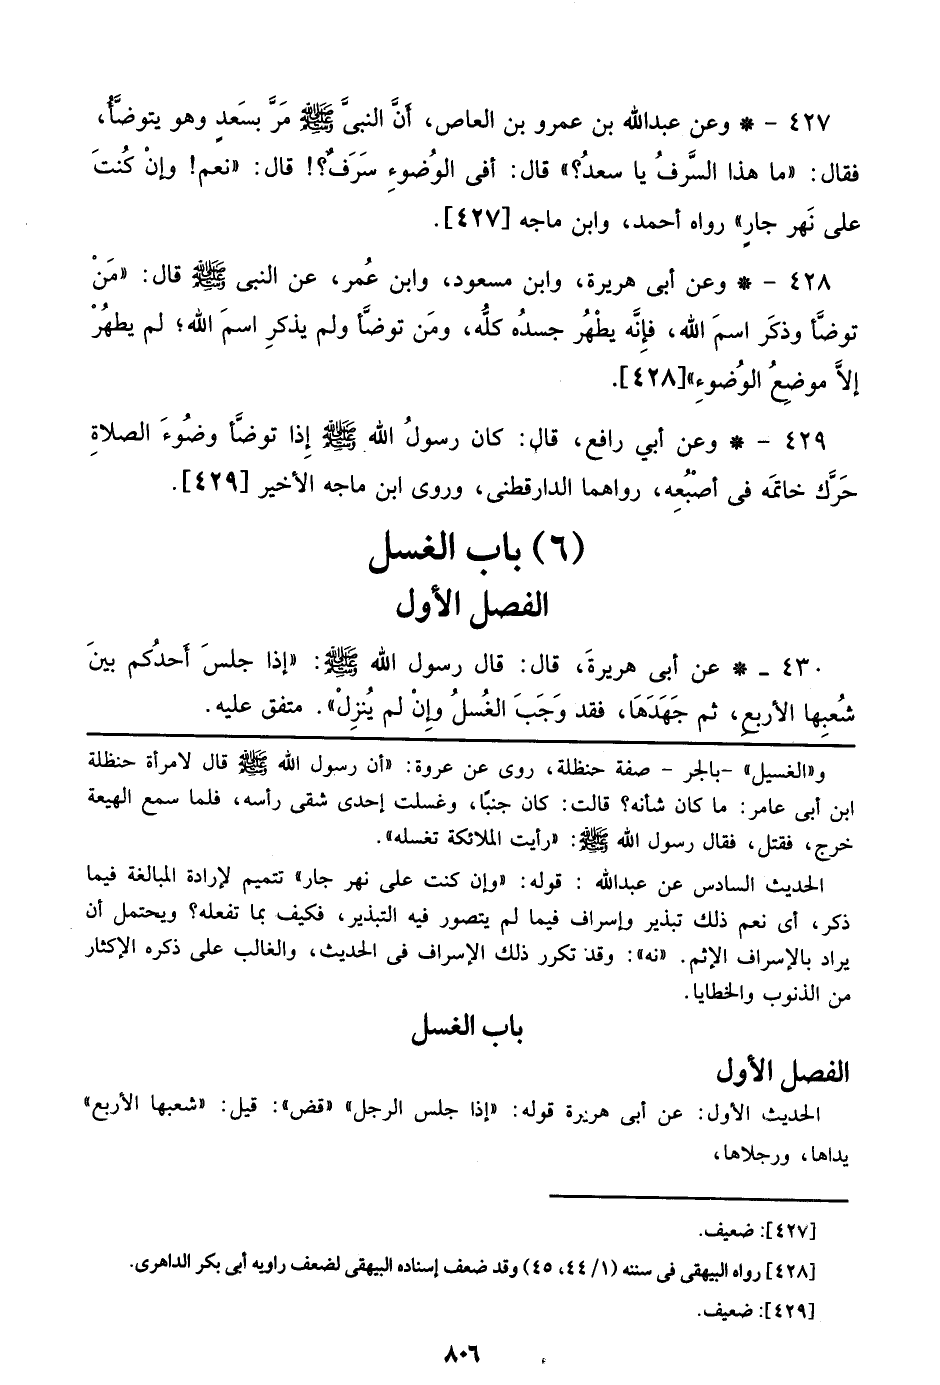 ٤٢٧ – * وعن عبدالله بن عمرو بن العاص، أَنَّ النبىَّ ﷺ مَرَّ بسَعدٍ وهو يتوضَّأُ،
فقال: «ما هذا السَّرفُ يا سعدُ؟» قال: أفى الوُضوءِ سَرَفٌ؟! قال: «نعم! وإنْ كُنتَ
على نَهر جارٍ» رواه أحمد، وابن ماجه [٤٢٧].
٤٢٨ – * وعن أبى هريرة، وابن مسعود، وابن عُمر، عن النبى ﷺ قال: «مَنْ
توضَّأ وذكَر اسمَ الله، فإنَّه يطْهُر جسدُه كلُّه، ومَن توضَّأ ولم يذكرِ اسمَ الله؛ لم يطهُرْ
إلاَّ موضِعُ الوُضوءِ»[٤٢٨].
٤٢٩ – * وعن أبي رافع، قال: كان رسولُ الله ﷺ إِذا توضَّأ وضُوءَ الصلاةِ
حَرَّك خاتمَه فى أصبُعِه، رواهما الدارقطنى، وروى ابن ماجه الأخير [٤٢٩].
(٦) باب الغسل
الفصل الأول
٤٣٠ ـ * عن أبى هريرةَ، قال: قال رسول الله ﷺ: «إذا جلسَ أَحدُكم بينَ
شُعبِها الأربعِ، ثم جَهَدَهَا، فقد وَجَبَ الغُسلُ وإنْ لم يُنزِلْ». متفق عليه.
و«الغسيل» –بالجر – صفة حنظلة، روى عن عروة: «أن رسول الله ﷺ قال لامرأة حنظلة
ابن أبى عامر: ما كان شأنه؟ قالت: كان جنبًا، وغسلت إحدى شقى رأسه، فلما سمع الهيعة
خرج، فقتل، فقال رسول الله ﷺ: «رأيت الملائكة تغسله».
الحديث السادس عن عبدالله : قوله: «وإن كنت على نهر جار» تتميم لإرادة المبالغة فيما
ذكر، أى نعم ذلك تبذير وإسراف فيما لم يتصور فيه التبذير، فكيف بما تفعله؟ ويحتمل أن
يراد بالإسراف الإثم. «نه»: وقد تكرر ذلك الإسراف فى الحديث، والغالب على ذكره الإكثار
من الذنوب والخطايا.
باب الغسل
الفصل الأول
الحديث الأول: عن أبى هريرة قوله: «إذا جلس الرجل» «قض»: قيل: «شعبها الأربع»
يداها، ورجلاها،
[٤٢٧]: ضعيف.
[٤٢٨] رواه البيهقى فى سننه (١/ ٤٤، ٤٥) وقد ضعف إسناده البيهقى لضعف راويه أبى بكر الداهرى.
[٤٢٩]: ضعيف.
٨٠٦